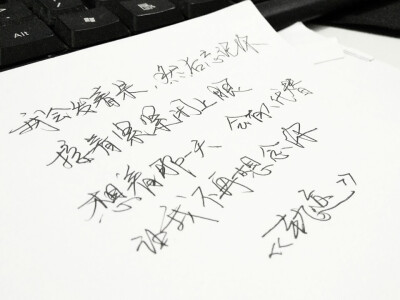 Alt
我会发着呆，然后忘记你
接着紧紧闭上眼
想着那一天 会有人代替
让我不再想念你
《勒勒》